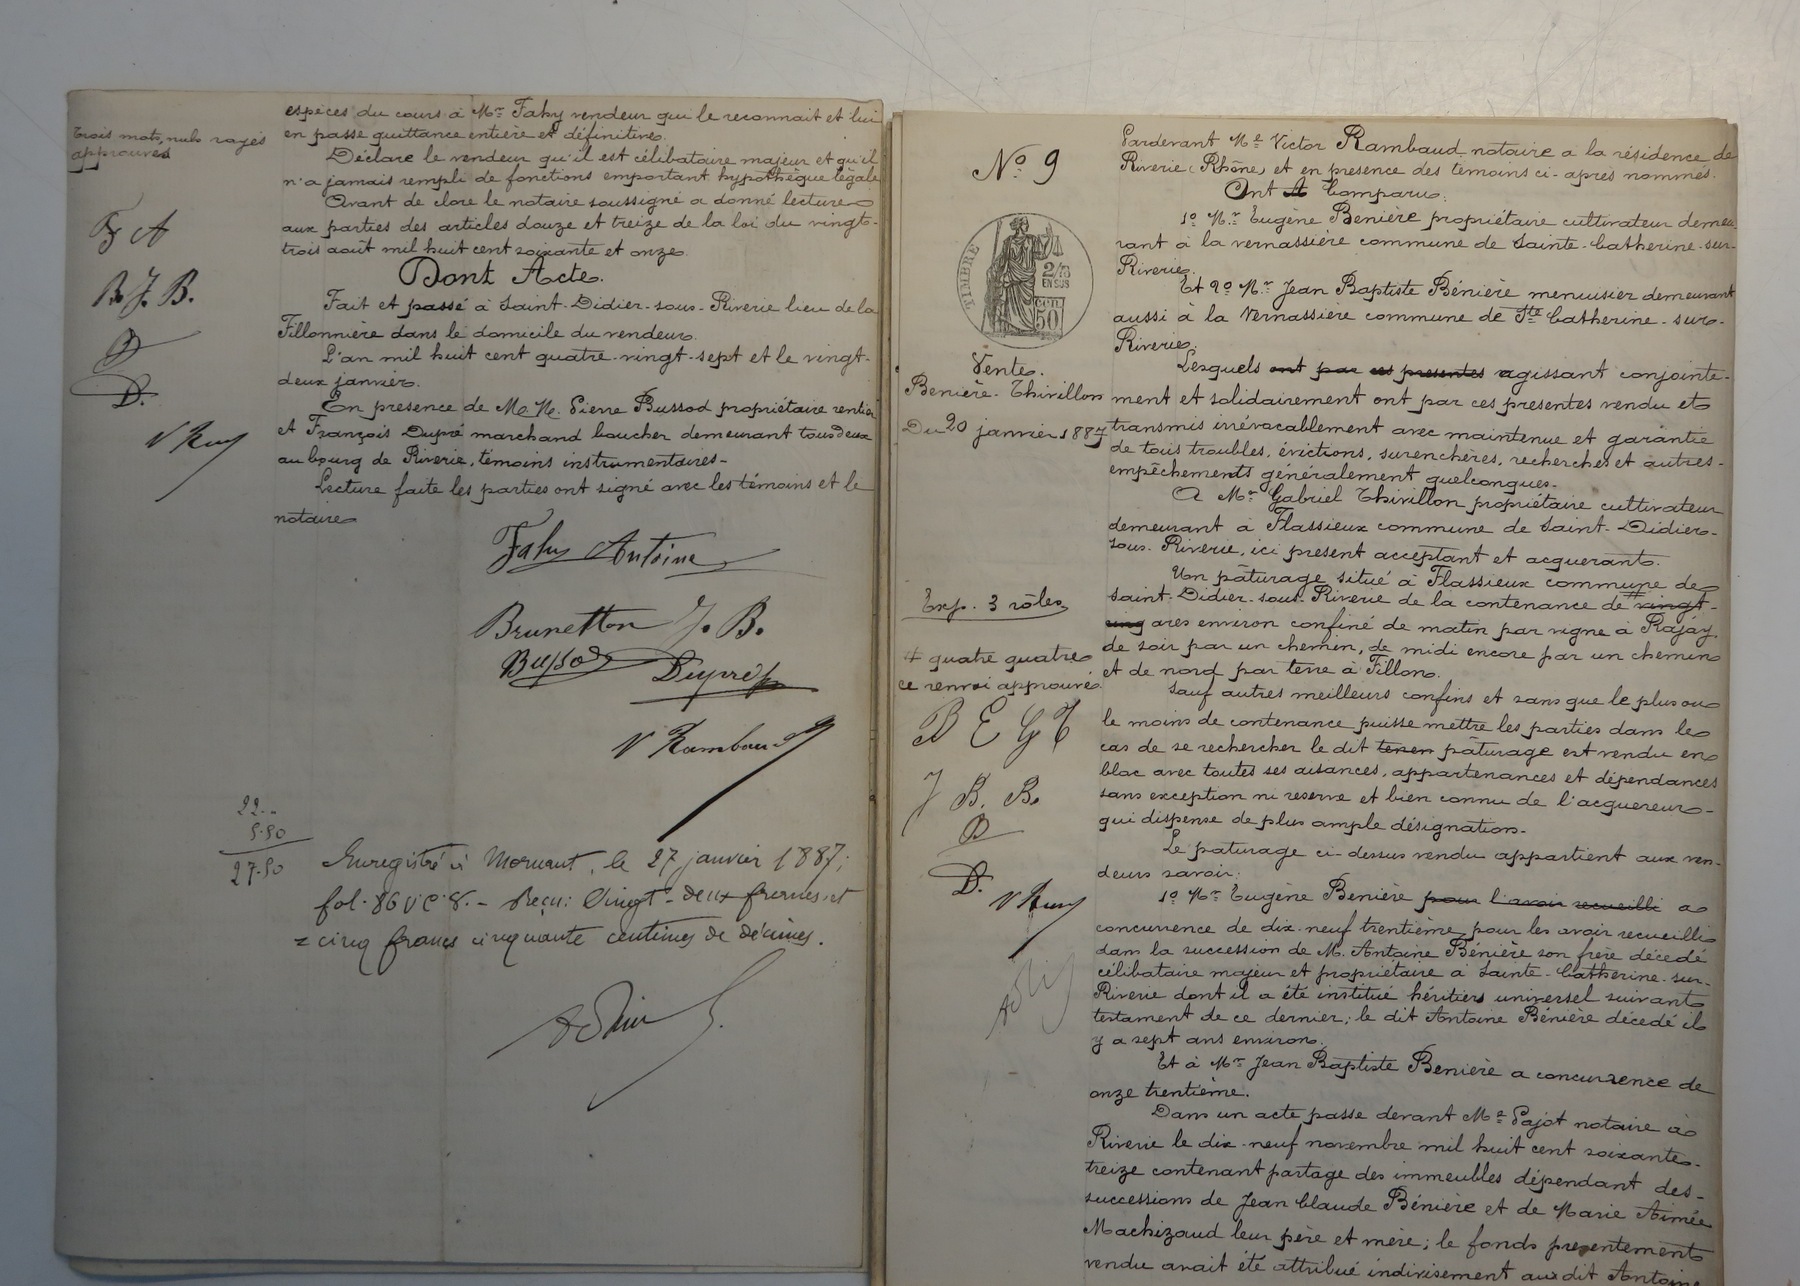 espèces du cours à Mr Fahy vendeur qui le reconnait et lui
en passe quittance entière et définitive.
Trois mots nuls rayés
approuvés
Déclare le vendeur qu'il est célibataire majeur et qu'il
n'a jamais rempli de fonctions emportant hypothèque légale
Avant de clore le notaire soussigné a donné lecture
aux parties des articles douze et treize de la loi du vingt-
trois août mil huit cent soixante et onze.
Dont Acte.
Fait et passé à Saint-Didier-sous-Riverie lieu de la
Fillonnière dans le domicile du vendeur.
L'an mil huit cent quatre-vingt-sept et le vingt-
deux janvier.
En présence de M. M. Pierre Bussod propriétaire rentier
et François Dupré marchand boucher demeurant tous deux
au bourg de Riverie, témoins instrumentaires-
Lecture faite les parties ont signé avec les témoins et le
notaire
F A
B. J. B.
B
D.
V R
Fahy Antoine
Brunetton J. B.
Bussod Dupré
V Rambaud
22..
5.50
27.50
Enregistré à Mornant, le 27 janvier 1887;
fol. 86 v c. 8. - Reçu: Vingt-deux francs et
= cinq francs cinquante centimes de décimes.
No 9
TIMBRE
2/10
EN SUS
CEN
50
Vente.
Benière-Thivillon
Du 20 janvier 1887
Exp. 3 rôles
# quatre quatre
ce renvoi approuvé
B E G T
J B. B.
B
D.
V R
Pardevant Me Victor Rambaud notaire a la résidence de
Riverie (Rhône) et en presence des témoins ci-après nommés.
Ont Comparu.
1o Mr Eugène Benière propriétaire cultivateur demeu
rant à la vernassière commune de Sainte-Catherine-sur-
Riverie.
Et 2o Mr Jean Baptiste Bénière menuisier demeurant
aussi à la Vernassière commune de Ste Catherine-sur-
Riverie.
Lesquels ont par ces presentes agissant conjointe-
ment et solidairement ont par ces presentes vendu et
transmis irrévocablement avec maintenue et garantie
de tous troubles, évictions, surenchères, recherches et autres-
empêchements généralement quelconques-
A Mr Gabriel Thivillon propriétaire cultivateur
demeurant à Flassieux commune de Saint-Didier-
sous-Riverie, ici present acceptant et acquerant.
Un pâturage situé à Flassieux commune de
Saint-Didier-sous-Riverie de la contenance de # vingt-
cinq ares environ confiné de matin par vigne à Rajay,
de soir par un chemin, de midi encore par un chemin
et de nord par terre à Fillon.
Sauf autres meilleurs confins et sans que le plus ou
le moins de contenance puisse mettre les parties dans le
cas de se rechercher le dit tenen pâturage est vendu en
bloc avec toutes ses aisances, appartenances et dépendances
sans exception ni reserve et bien connu de l'acquereur-
qui dispense de plus ample désignation-
Le paturage ci-dessus vendu appartient aux ven-
deurs savoir:
1o Mr Eugène Benière pour l'avoir recueilli a
concurence de dix-neuf trentième pour les avoir recueilli
dans la succession de M. Antoine Bénière son frère décédé
célibataire majeur et propriétaire a Sainte-Catherine-sur-
Riverie dont il a été institué héritier universel suivant
testament de ce dernier; le dit Antoine Bénière décédé il
y a sept ans environ.
Et à Mr Jean Baptiste Benière a concurrence de
onze trentième.
Dans un acte passe devant Me Pajot notaire à
Riverie le dix-neuf novembre mil huit cent soixante-
treize contenant partage des immeubles dépendant des-
successions de Jean Claude Bénière et de Marie Aimée
Machizaud leur père et mère; le fonds presentement
vendu avait été attribué indivisement au dit Antoine